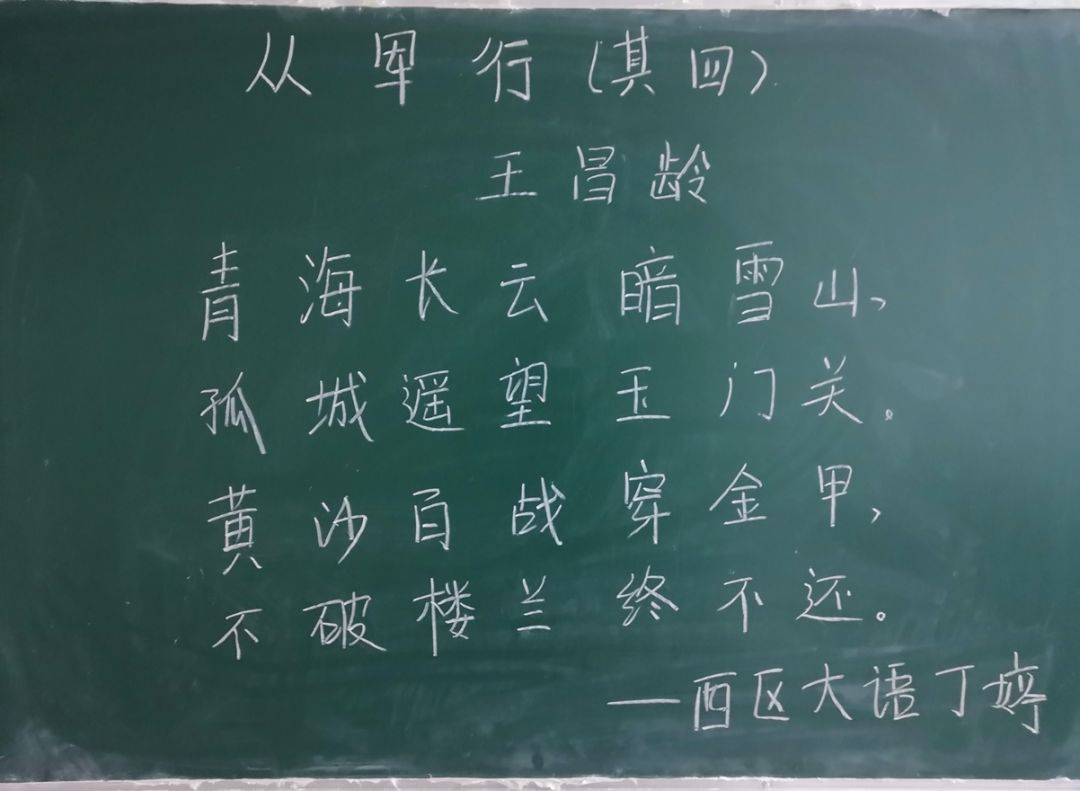 从军行（其四）
王昌龄
青海长云暗雪山，
孤城遥望玉门关。
黄沙百战穿金甲，
不破楼兰终不还。
——西区大语丁婷